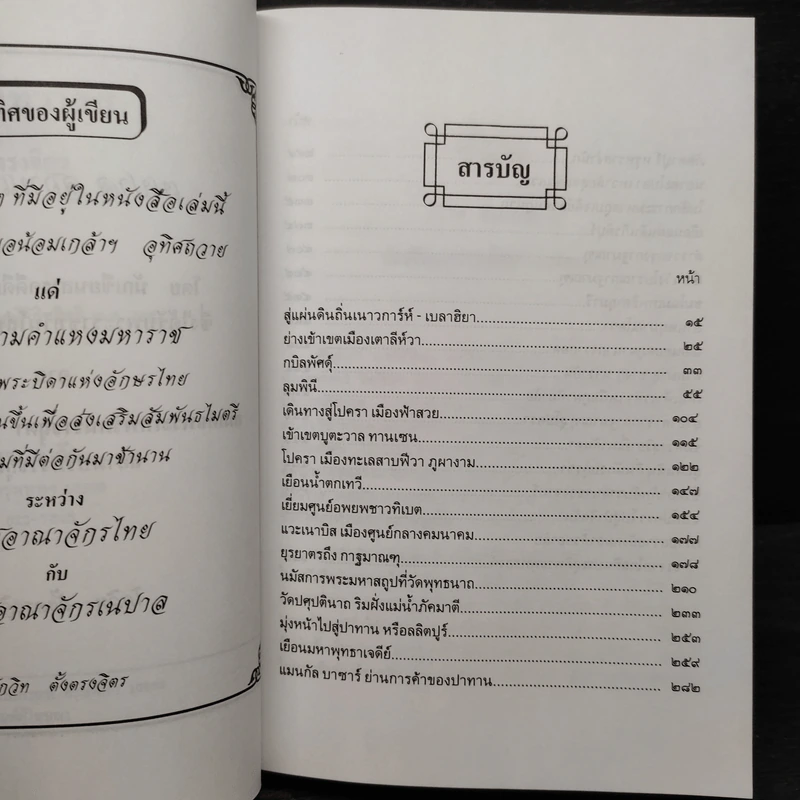 ของผู้เขียน
ที่มีอยู่ในหนังสือเล่มนี้
อุทิศถวาย
แด่
คำแหงมหาราช
พระบิดาแห่งอักษรไทย
ขึ้นเพื่อส่งเสริมสัมพันธไมตรี
ที่มีต่อกันมาช้านาน
ระหว่าง
อาณาจักรไทย
กับ
อาณาจักรเนปาล
ตั้งตรงจิตร
สารบัญ
หน้า
สู่แผ่นดินถิ่นเนาวการ์ห์ - เบลาฮิยา ๑๕
ย่างเข้าเขตเมืองเตาลีห์วา ๒๕
กบิลพัศดุ์ ๓๓
ลุมพินี ๕๕
เดินทางสู่โปครา เมืองฟ้าสวย ๑๐๔
เข้าเขตบูตะวาล ทานเซน ๑๑๕
โปครา เมืองทะเลสาบฟีวา ภูผางาม ๑๒๒
เยือนน้ำตกเทวี ๑๔๗
เยี่ยมศูนย์อพยพชาวทิเบต ๑๕๔
แวะเนาบิส เมืองศูนย์กลางคมนาคม ๑๗๗
ยุรยาตรถึง กาฐมาณฑุ ๑๗๘
นมัสการพระมหาสถูปที่วัดพุทธนาถ ๒๑๐
วัดปศุปตินาถ ริมฝั่งแม่น้ำภัคมาตี ๒๓๓
มุ่งหน้าไปสู่ปาทาน หรือลลิตปูร์ ๒๕๓
เยือนมหาพุทธาเจดีย์ ๒๕๙
แมนกัล บาซาร์ ย่านการค้าของปาทาน ๒๘๒